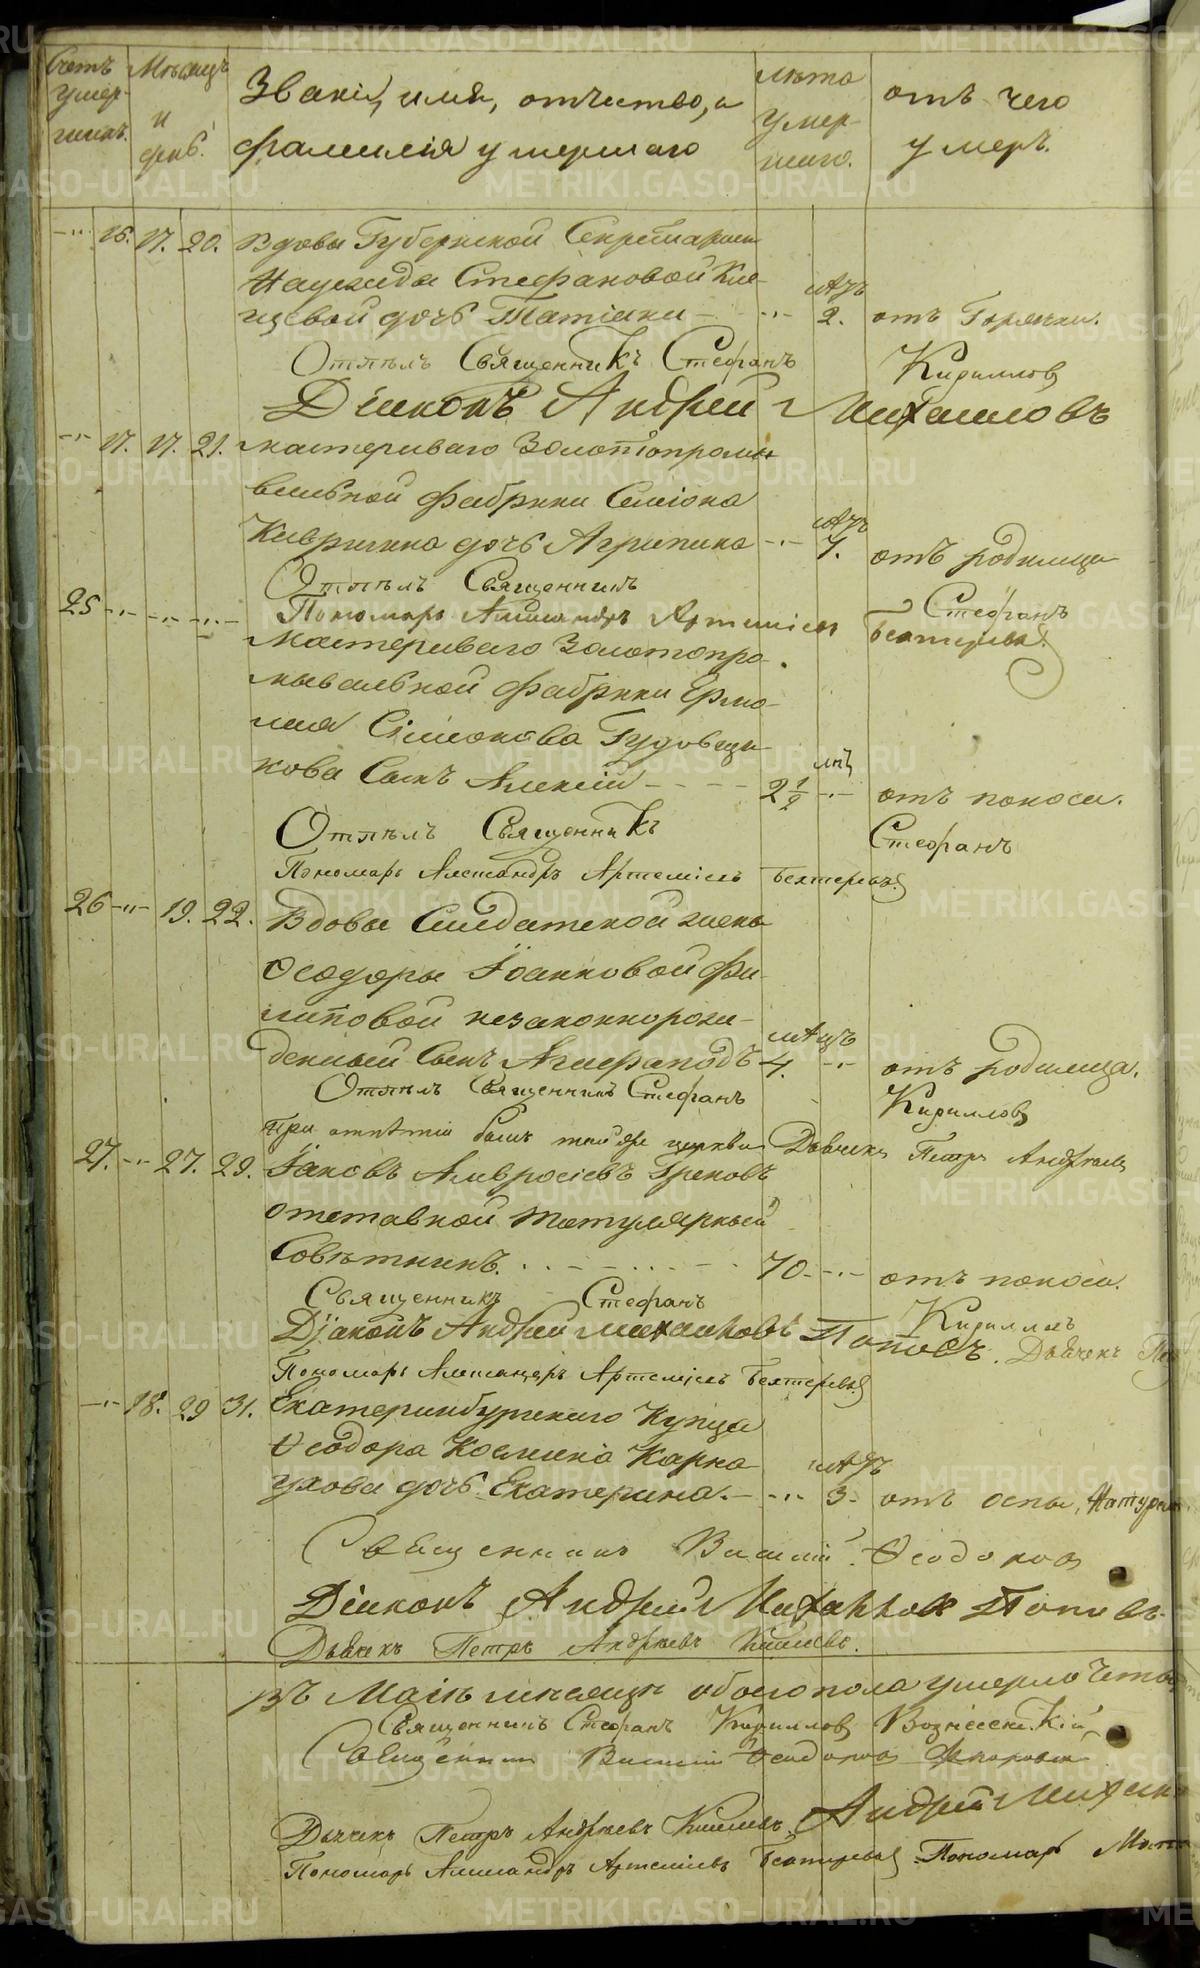 Счетъ умер- шихъ.
Мѣсяцъ и днѣ.
Званіе, имя, отчество, и
фамилія умершаго
лѣта умер- шаго.
отъ чего
умеръ.
16. 17. 20. Вдовы Губернской Секретарши
Надежды Стефановой Кле-
щевой дочь Татіана 2. отъ Горячки.
Отпѣлъ Священникъ Стефанъ Кирилловъ
Діаконъ Андрей Михаиловъ
17. 17. 21. мастероваго Золотопромы-
вальной фабрики Симіона
дочь Агрипина 7. отъ родимца
Отпѣлъ Священникъ Стефанъ
Пономарь Александръ Артеміевъ Бехтеревъ
25 Мастероваго Золотопро-
мывальной фабрики Ермо-
лая Симіонова
кова Сынъ Алексій 2 1/2 отъ поноса.
Отпѣлъ Священникъ Стефанъ
Пономарь Александръ Артеміевъ Бехтеревъ
26 19. 22. Вдовы Солдатской жены
Ѳеодоры Іоанновой Фи-
липовой незаконнорож-
денный Сынъ Агафаподъ 4. мѣсць отъ родимца.
Отпѣлъ Священникъ Стефанъ Кирилловъ
при отпѣтіи былъ той же церкви Дьячекъ Петръ Андреевъ
27. 27. 29. Іаковъ Амвросіевъ Грековъ
отставной титулярный
Совѣтникъ. 70. отъ поноса.
Священникъ Стефанъ Кирилловъ
Діаконъ Андрей Михаиловъ Поповъ. Дьячекъ
Пономарь Александръ Артеміевъ Бехтеревъ
18. 29 31. Екатеринбургскаго Купца
Ѳеодора Космина Карна-
ухова дочь Екатерина. 3. отъ оспы,
Священникъ Василій Ѳеодоровъ
Діаконъ Андрей Михаиловъ Поповъ
Дьячекъ Петръ Андреевъ Киселевъ.
Въ Маіѣ мѣсяцѣ обоего пола умерло
Священникъ Стефанъ Кирилловъ Вознесенскій
Священникъ Василій Ѳеодоровъ
Андрей
Дьячекъ Петръ Андреевъ Киселевъ.
Пономарь Александръ Артеміевъ Бехтеревъ Пономарь
METRIKI.GASO-URAL.RU